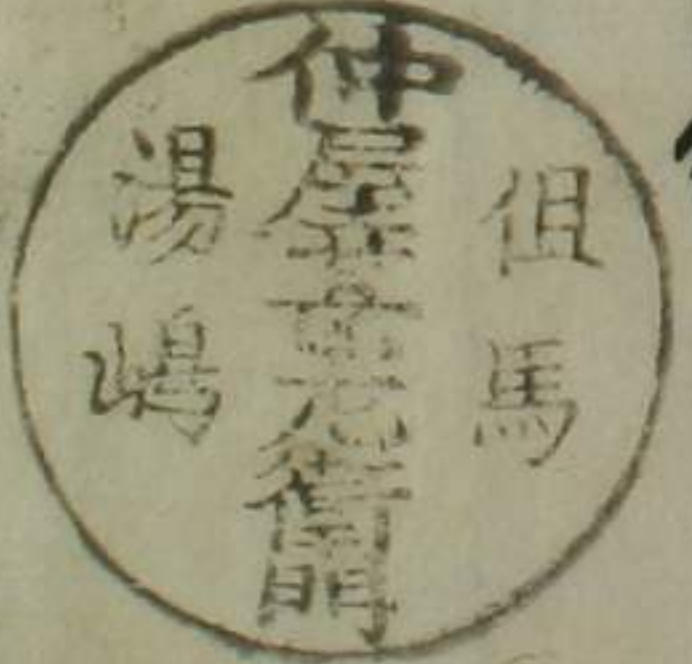 但馬
仲屋衛門
湯嶋